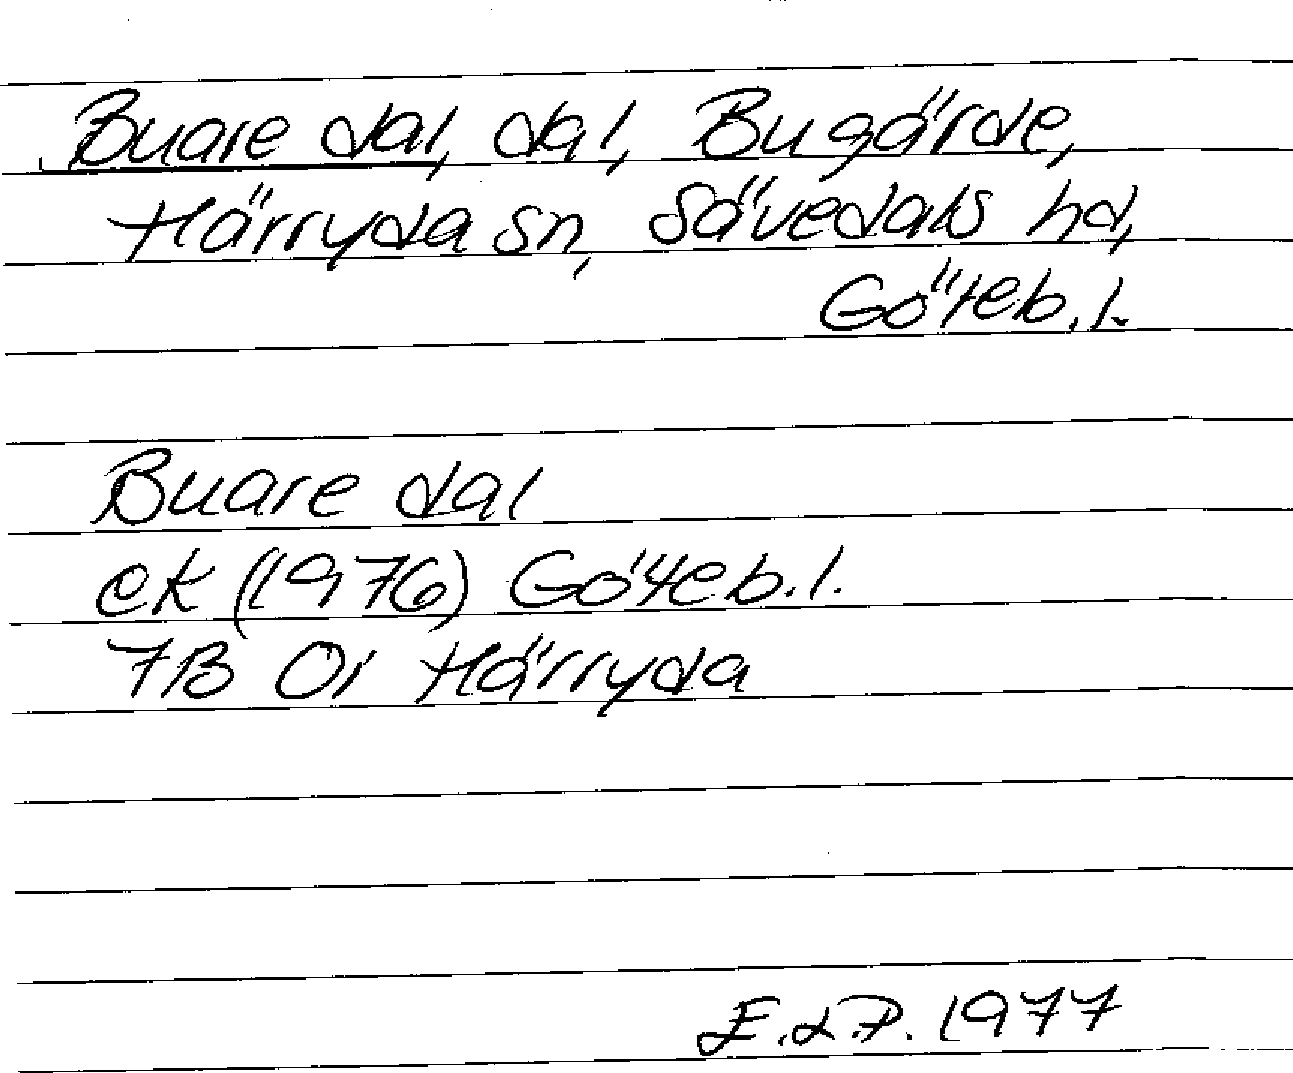 Buare dal, dal, Bugärde,
Härryda sn, Sävedals hd,
Göteb. l.
Buare dal
ek (1976) Göteb. l.
7B 0i Härryda
E.d.P. 1977